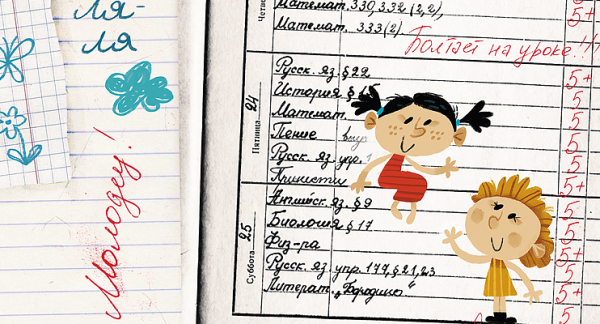 ля-
ля
Молодец!
Четве
Математ. 330, 332 (2,2),
5+
Математ. 333(2)
Болтает на уроке!!!
24
Пятница
Русск. яз. § 22
5+
История §
5
Математ.
5
Пение
5
Русск. яз. упр.
5
5+
25
Суббота
Английск. яз. § 9
5
Биология § 17
5
Физ-ра
5
Русск. яз. упр. 177, § 21, 23
5
Литерат. „Бородино“
5+
5